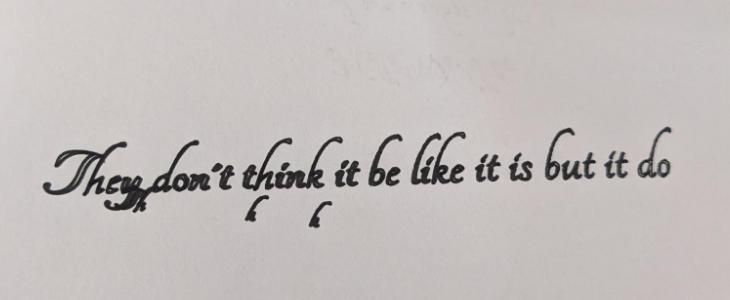 They don't think it be like it is but it do
h h h